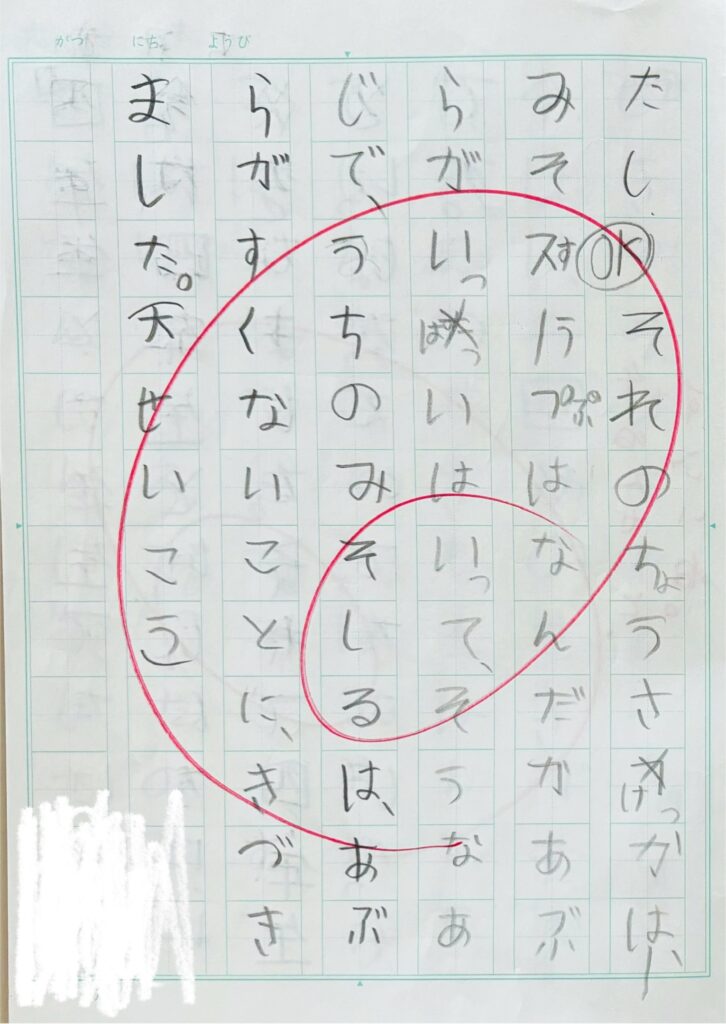 がつ にち ようび
たし OK それのちょうさけっかは、
みそスープはなんだかあぶ
らがいっぱいはいって、そうなあ
じで、うちのみそしるは、あぶ
らがすくないことに、きづき
ました。大せいこう